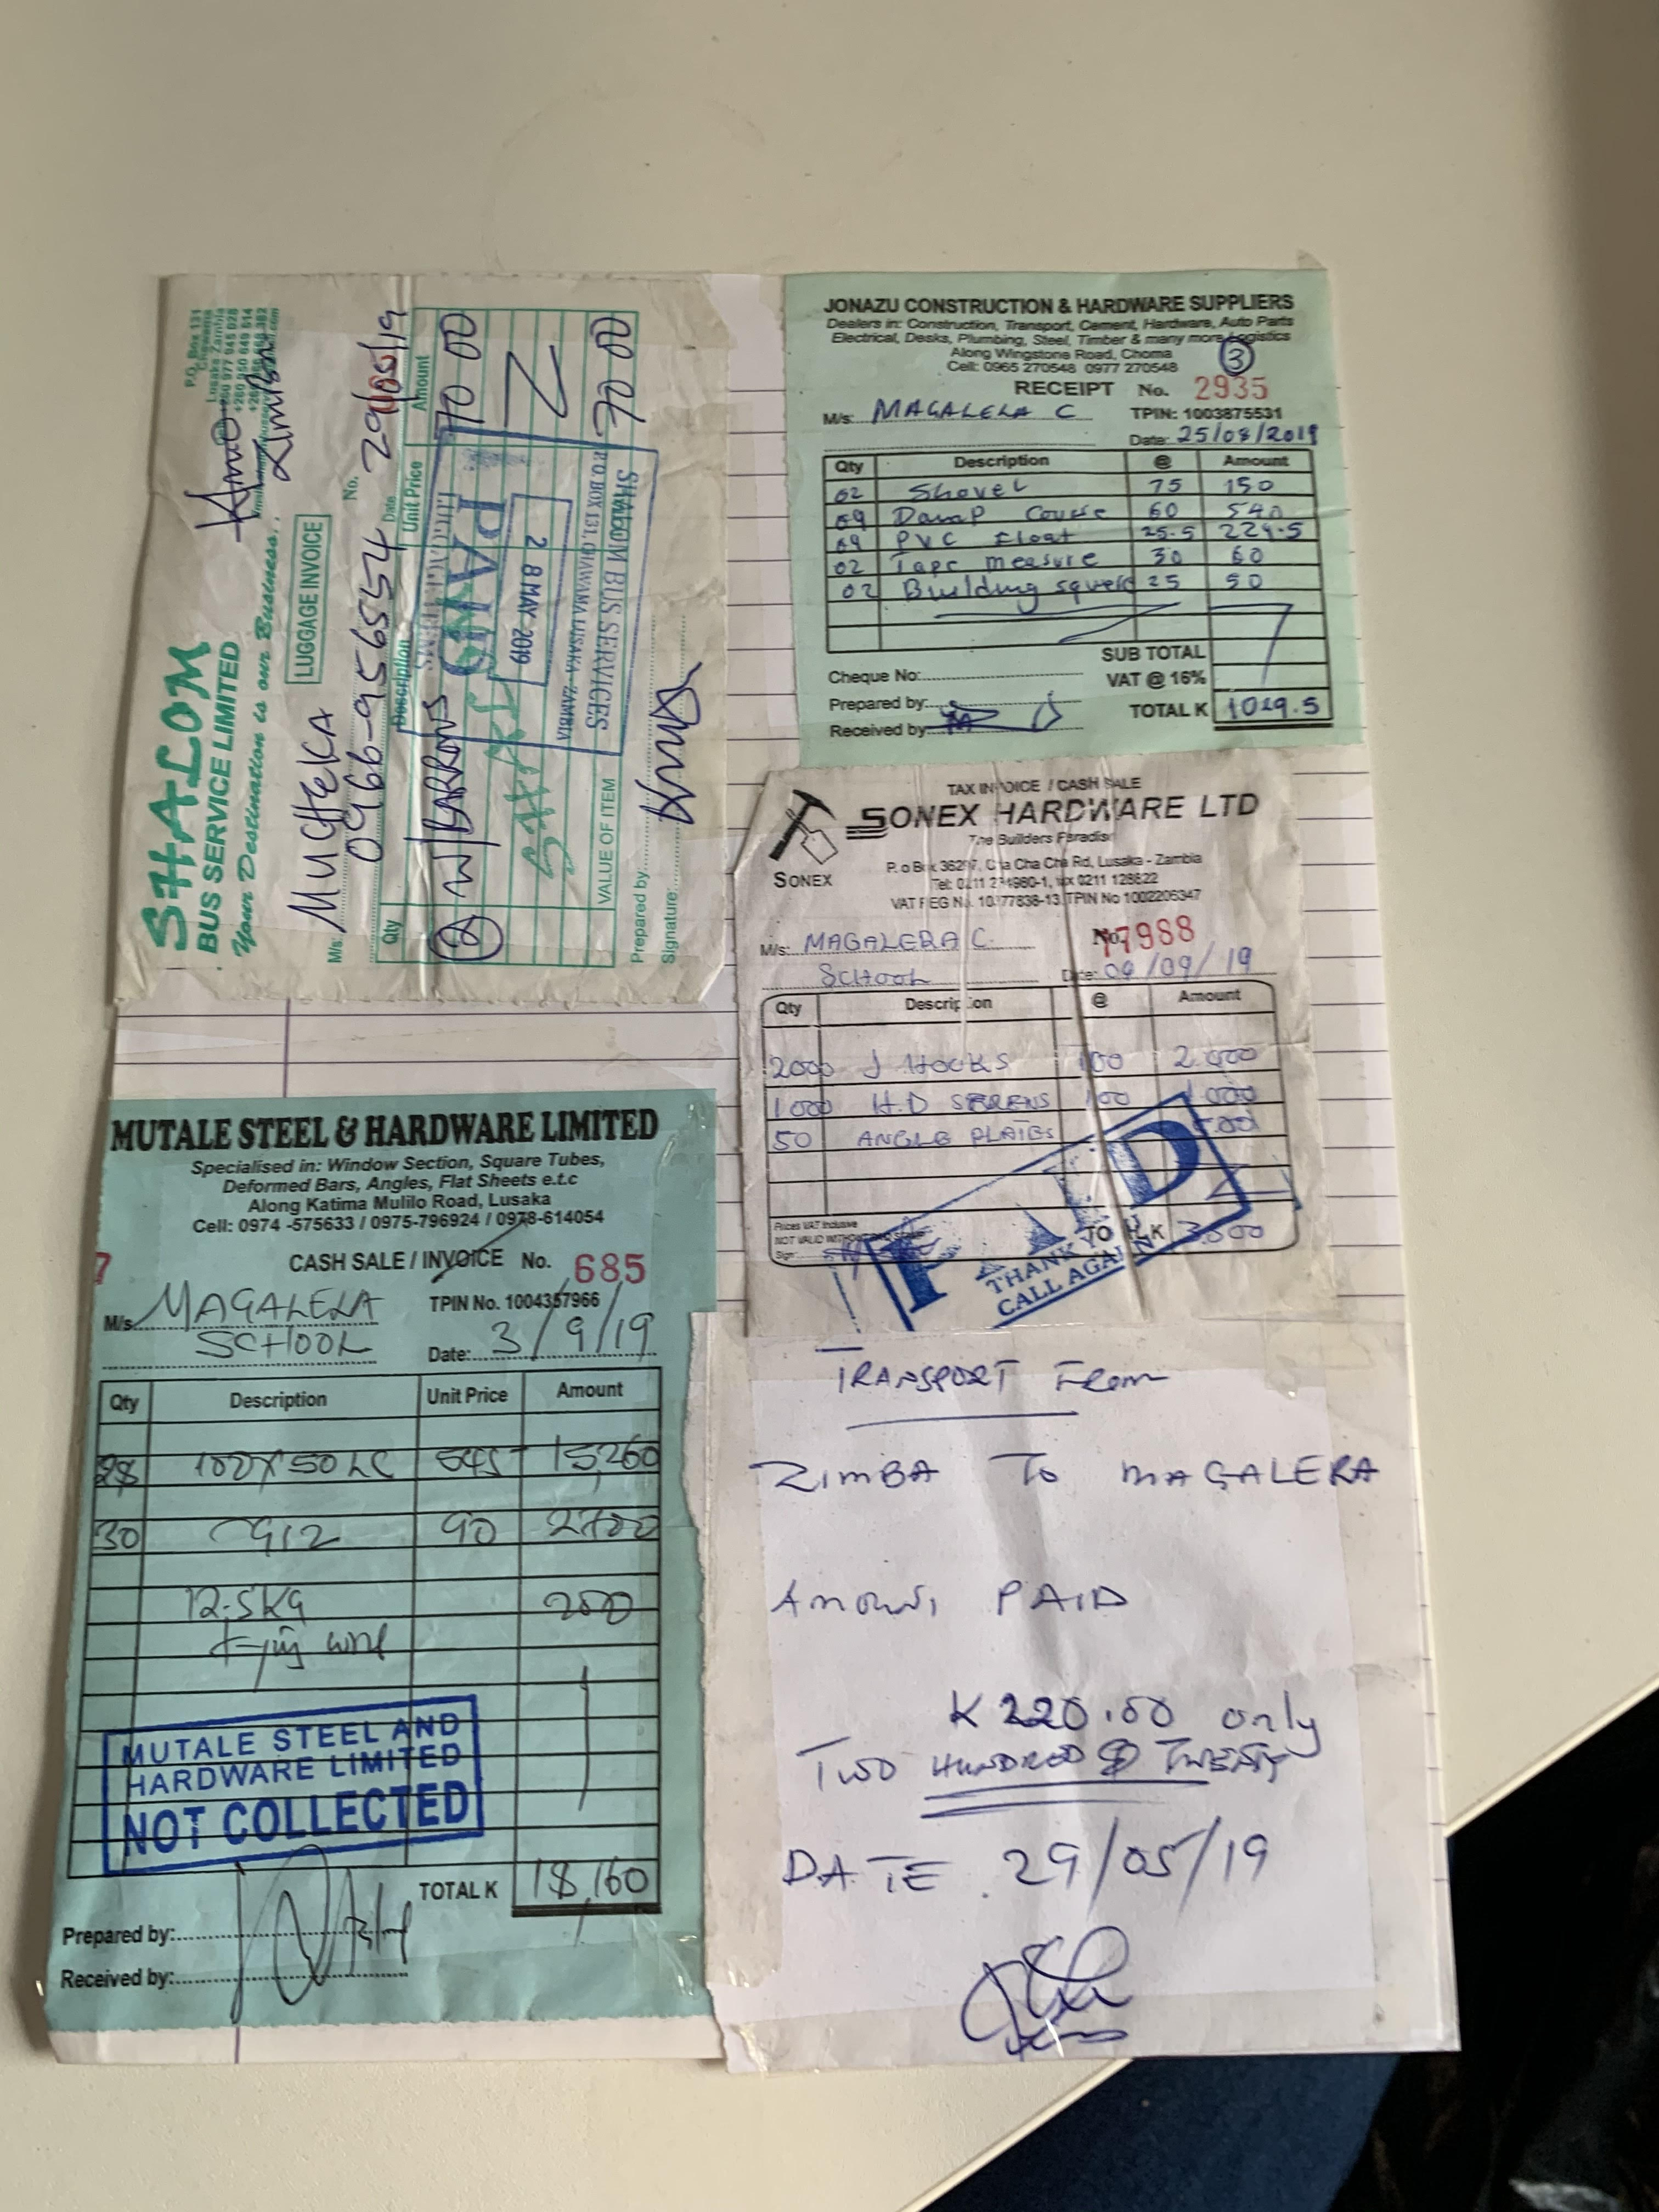 SHALOM
BUS SERVICE LIMITED
Your Destination is our Business...
P.O. Box 131
Chawama
Lusaka Zambia
LUGGAGE INVOICE
M/s: MUCHEKA
No.
0966-956554
Date 29/05/19
Qty Description Unit Price Amount
2 W/BARRONS 70 00
PAID
28 MAY 2019
SHALOM BUS SERVICES
P.O. BOX 131, CHAWAMA LUSAKA - ZAMBIA
VALUE OF ITEM 70 00
Prepared by:
Signature:
JONAZU CONSTRUCTION & HARDWARE SUPPLIERS
Dealers in: Construction, Transport, Cement, Hardware, Auto Parts
Electrical, Desks, Plumbing, Steel, Timber & many more Logistics
Along Wingstone Road, Choma
Cell: 0965 270548 0977 270548
3
RECEIPT No. 2935
M/s: MAGALELA C TPIN: 1003875531
Date: 25/08/2019
Qty Description @ Amount
02 Shovel 75 150
09 Damp Course 60 540
09 PVC float 25.5 229.5
02 Tape measure 30 60
02 Building square 25 50
SUB TOTAL
Cheque No: VAT @ 16%
Prepared by: TOTAL K 1029.5
Received by:
TAX INVOICE / CASH SALE
SONEX HARDWARE LTD
The Builders Paradise
SONEX
P.o Box 36297, Cha Cha Cha Rd, Lusaka - Zambia
Tel: 0211 234980-1, fax 0211 128822
VAT REG No. 10177838-13, TPIN No 1002206347
M/s: MAGALERA C. No. 17988
SCHOOL Date: 04/09/19
Qty Description @ Amount
2000 J HOOKS 100 2.000
1000 H.D 100 1.000
50 ANGLE PLATES 500
Prices VAT Inclusive
NOT VALID WITHOUT
Sign:
TOTAL K 3.500
PAID
THANK YOU
CALL AGAIN
MUTALE STEEL & HARDWARE LIMITED
Specialised in: Window Section, Square Tubes,
Deformed Bars, Angles, Flat Sheets e.t.c
Along Katima Mulilo Road, Lusaka
Cell: 0974 -575633 / 0975-796924 / 0978-614054
7
CASH SALE / INVOICE No. 685
M/s: MAGALELA TPIN No. 1004357966
SCHOOL Date: 3/9/19
Qty Description Unit Price Amount
28 100X50 LC 545 15,260
30 Y12 90 2700
12.5KG 200
tying wire
MUTALE STEEL AND
HARDWARE LIMITED
NOT COLLECTED
TOTAL K 18,160
Prepared by:
Received by:
TRANSPORT From
ZIMBA To MAGALERA
Amount PAID
K220.00 only
TWO HUNDRED & TWENTY
DATE 29/05/19